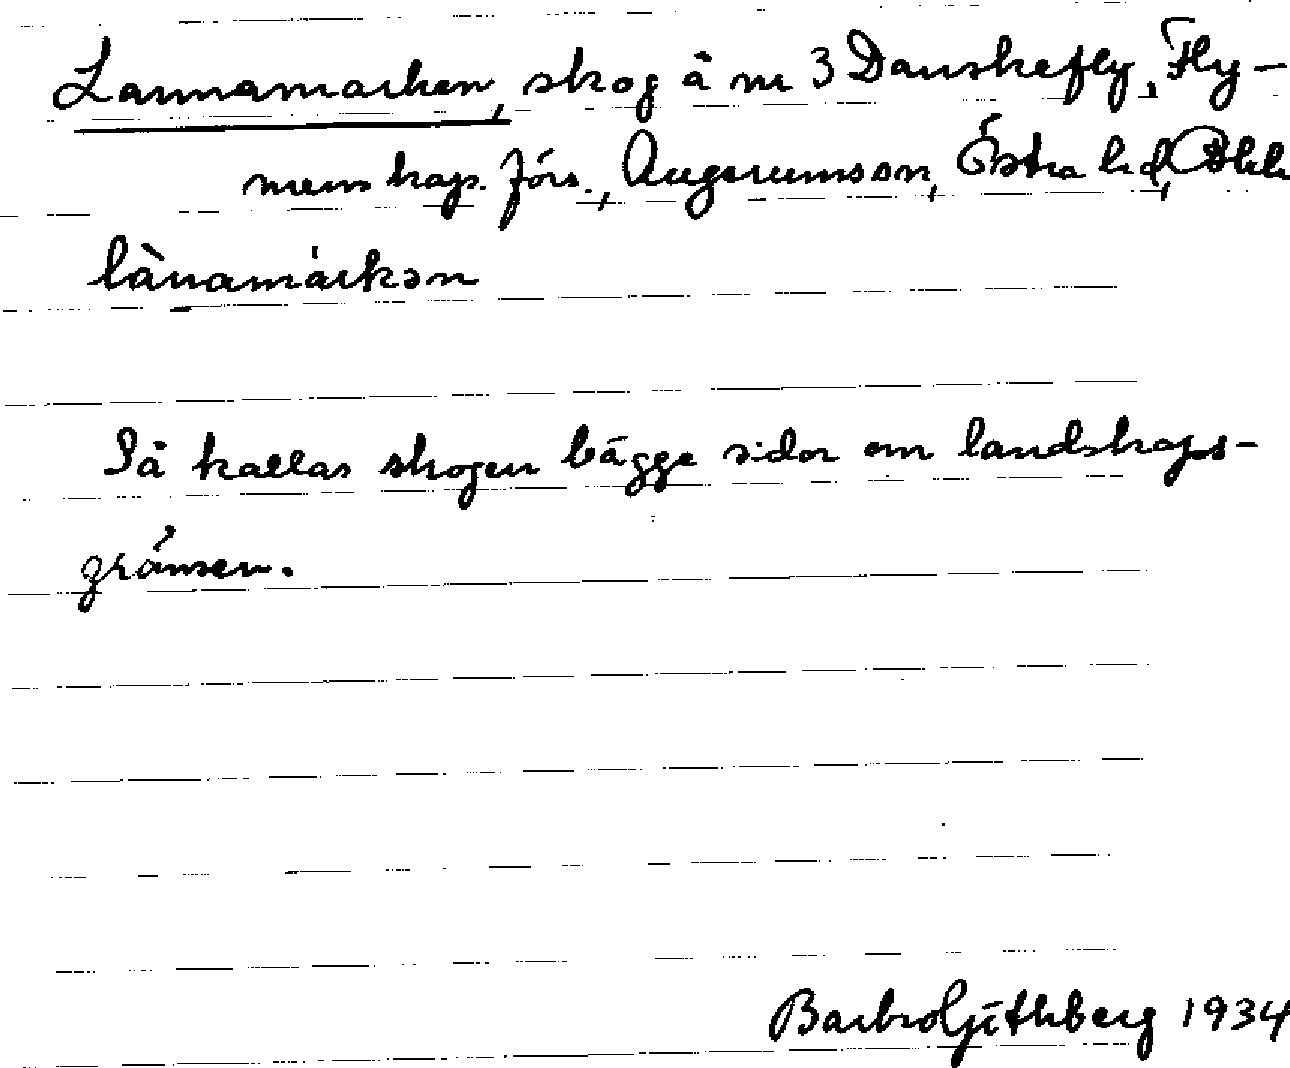 Lannamarken, skog å nr 3 Danskefly, Fly-
mens kap. förs., Augerumssn, Östra hd, Blek
lànamárkən
Så kallas skogen bägge sidor om landskaps-
gränsen.
Barbro Göthberg 1934